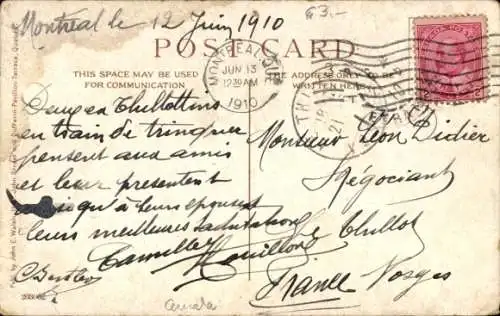 Montréal le 12 Juin 1910
63.-
POST CARD
THIS SPACE MAY BE USED
FOR COMMUNICATION
THE ADDRESS ONLY TO BE
WRITTEN HERE
MONTREAL
JUN 13
12 30 AM
1910
Deux Thillotins
en train de trinquer
pensent aux amis
et leur présentent
ainsi qu'à leurs épouses
leurs meilleures salutations
Camille
Monsieur Léon Didier
Négociant
Le Thillot
France Vosges
Canada